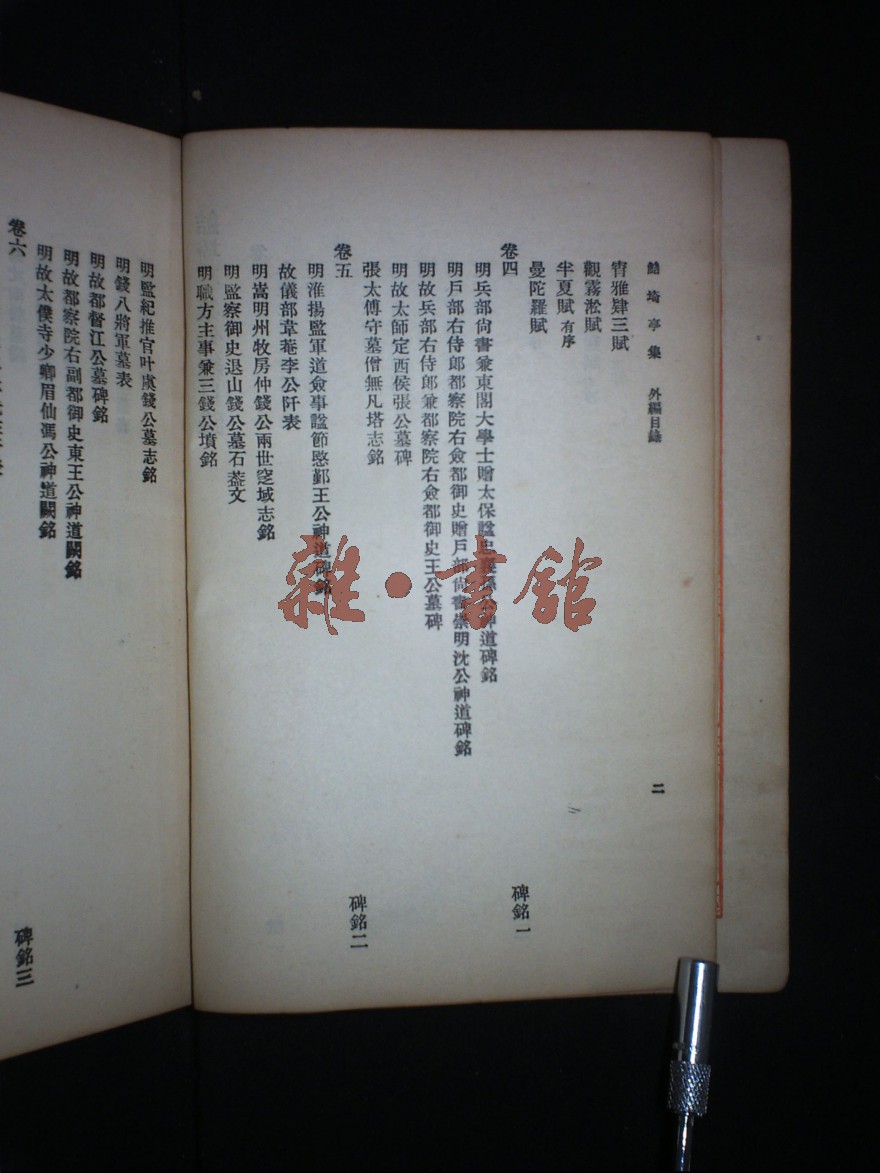 鮚埼亭集 外編目錄 二
宵雅肄三賦
觀霧淞賦
半夏賦 有序
曼陀羅賦
卷四 碑銘一
明兵部尙書兼東閣大學士贈太保諡忠襄孫公神道碑銘
明戶部右侍郎都察院右僉都御史贈戶部尙書崇明沈公神道碑銘
明故兵部右侍郎兼都察院右僉都御史王公墓碑
明故太師定西侯張公墓碑
張太傅守墓僧無凡塔志銘
卷五 碑銘二
明淮揚監軍道僉事諡節愍鄞王公神道碑銘
故儀部韋菴李公阡表
明嵩明州牧房仲錢公兩世窆域志銘
明監察御史退山錢公墓石蓋文
明職方主事兼三錢公墳銘
明監紀推官叶虞錢公墓志銘
明錢八將軍墓表
明故都督江公墓碑銘
明故都察院右副都御史東王公神道闕銘
明故太僕寺少卿眉仙馮公神道闕銘
卷六 碑銘三
雜·書館